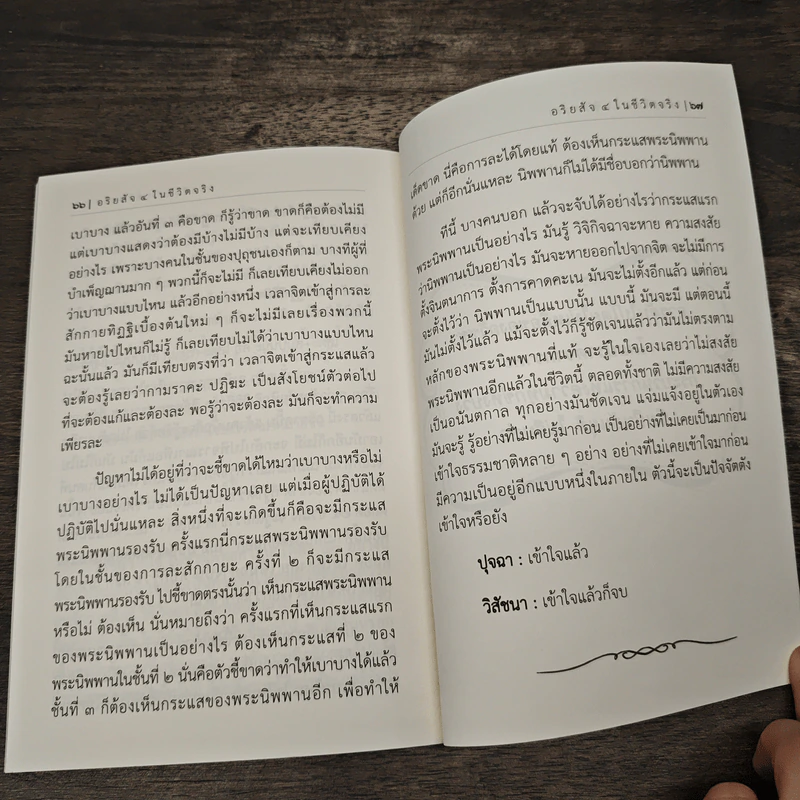 ๖๖ | อริยสัจ ๔ ในชีวิตจริง
เบาบาง แล้วอันที่ ๓ คือขาด ก็รู้ว่าขาด ขาดก็คือต้องไม่มี
แต่เบาบางแสดงว่าต้องมีบ้างไม่มีบ้าง แต่จะเทียบเคียง
อย่างไร เพราะบางคนในชั้นของปุถุชนเองก็ตาม บางทีผู้ที่
บำเพ็ญฌานมาก ๆ พวกนี้ก็จะไม่มี ก็เลยเทียบเคียงไม่ออก
ว่าเบาบางแบบไหน แล้วอีกอย่างหนึ่ง เวลาจิตเข้าสู่การละ
สักกายทิฏฐิเบื้องต้นใหม่ ๆ ก็จะไม่มีเลยเรื่องพวกนี้
มันหายไปไหนก็ไม่รู้ ก็เลยเทียบไม่ได้ว่าเบาบางแบบไหน
ฉะนั้นแล้ว มันก็มีเทียบตรงที่ว่า เวลาจิตเข้าสู่กระแสแล้ว
จะต้องรู้เลยว่ากามราคะ ปฏิฆะ เป็นสังโยชน์ตัวต่อไป
ที่จะต้องแก้และต้องละ พอรู้ว่าจะต้องละ มันก็จะทำความ
เพียรละ
ปัญหาไม่ได้อยู่ที่ว่าจะชี้ขาดได้ไหมว่าเบาบางหรือไม่
เบาบางอย่างไร ไม่ได้เป็นปัญหาเลย แต่เมื่อผู้ปฏิบัติได้
ปฏิบัติไปนั่นแหละ สิ่งหนึ่งที่จะเกิดขึ้นก็คือจะมีกระแส
พระนิพพานรองรับ ครั้งแรกนี่กระแสพระนิพพานรองรับ
โดยในชั้นของการละสักกายะ ครั้งที่ ๒ ก็จะมีกระแส
พระนิพพานรองรับ ไปชี้ขาดตรงนั้นว่า เห็นกระแสพระนิพพาน
หรือไม่ ต้องเห็น นั่นหมายถึงว่า ครั้งแรกที่เห็นกระแสแรก
ของพระนิพพานเป็นอย่างไร ต้องเห็นกระแสที่ ๒ ของ
พระนิพพานในชั้นที่ ๒ นั่นคือตัวชี้ขาดว่าทำให้เบาบางได้แล้ว
ชั้นที่ ๓ ก็ต้องเห็นกระแสของพระนิพพานอีก เพื่อทำให้
อริยสัจ ๔ ในชีวิตจริง | ๖๗
เด็ดขาด นี่คือการละได้โดยแท้ ต้องเห็นกระแสพระนิพพาน
ด้วย แต่ก็อีกนั่นแหละ นิพพานก็ไม่ได้มีชื่อบอกว่านิพพาน
ทีนี้ บางคนบอก แล้วจะจับได้อย่างไรว่ากระแสแรก
พระนิพพานเป็นอย่างไร มันรู้ วิจิกิจฉาจะหาย ความสงสัย
ว่านิพพานเป็นอย่างไร มันจะหายออกไปจากจิต จะไม่มีการ
ตั้งจินตนาการ ตั้งการคาดคะเน มันจะไม่ตั้งอีกแล้ว แต่ก่อน
จะตั้งไว้ว่า นิพพานเป็นแบบนั้น แบบนี้ มันจะมี แต่ตอนนี้
มันไม่ตั้งไว้แล้ว แม้จะตั้งไว้ก็รู้ชัดเจนแล้วว่ามันไม่ตรงตาม
หลักของพระนิพพานที่แท้ จะรู้ในใจเองเลยว่าไม่สงสัย
พระนิพพานอีกแล้วในชีวิตนี้ ตลอดทั้งชาติ ไม่มีความสงสัย
เป็นอนันตกาล ทุกอย่างมันชัดเจน แจ่มแจ้งอยู่ในตัวเอง
มันจะรู้ รู้อย่างที่ไม่เคยรู้มาก่อน เป็นอย่างที่ไม่เคยเป็นมาก่อน
เข้าใจธรรมชาติหลาย ๆ อย่าง อย่างที่ไม่เคยเข้าใจมาก่อน
มีความเป็นอยู่อีกแบบหนึ่งในภายใน ตัวนี้จะเป็นปัจจัตตัง
เข้าใจหรือยัง
ปุจฉา : เข้าใจแล้ว
วิสัชนา : เข้าใจแล้วก็จบ